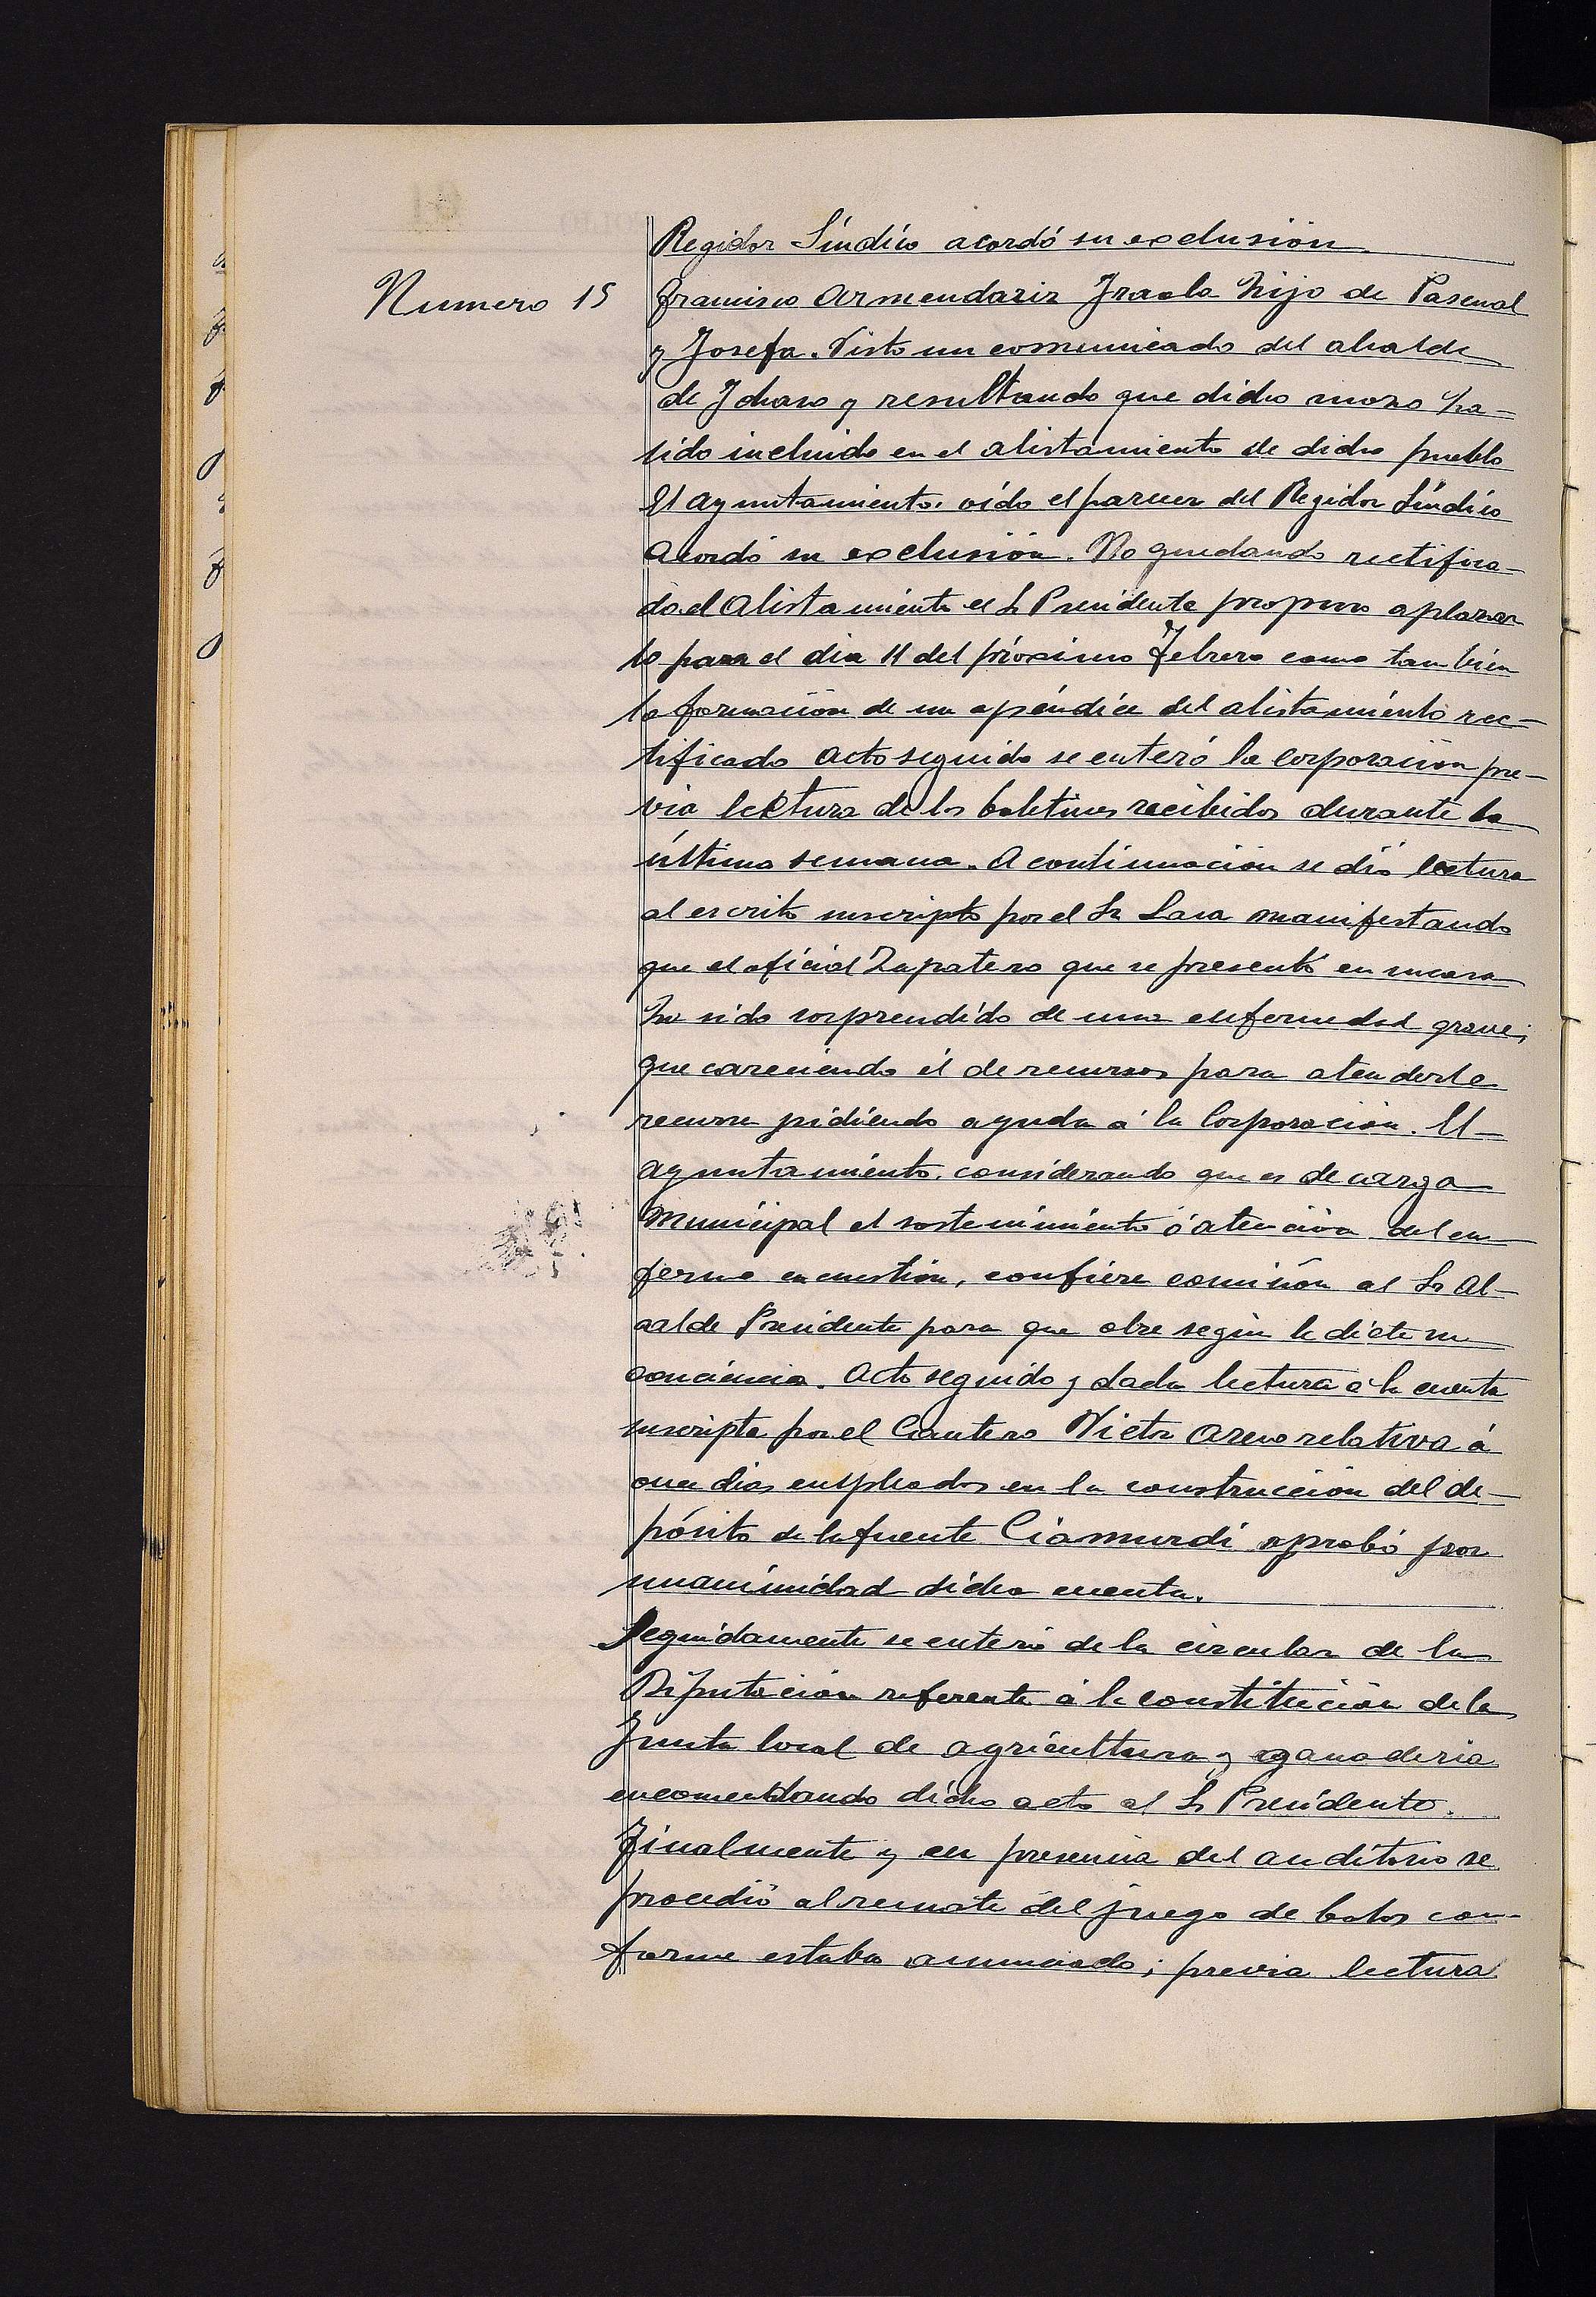 Regidor Síndico acordó su exclusión
Numero 15 Francisco Armendariz Iraola hijo de Pascual
y Josefa. Visto un comunicado del alcalde
de Ichaso y resultando que dicho mozo ha
sido incluido en el alistamiento de dicho pueblo
El ayuntamiento oído el parecer del Regidor Síndico
acordó su exclusión. No quedando rectifica-
do el alistamiento el Sr Presidente propuso aplazar
lo para el día 11 del próximo Febrero como también
la formación de un apéndice del alistamiento rec-
tificado Acto seguido se enteró la corporación pre-
via lectura de los boletines recibidos durante la
última semana. A continuación se dió lectura
al escrito suscripto por el Sr Lasa manifestando
que el oficial Zapatero que se presentó en su casa
ha sido sorprendido de una enfermedad grave;
que careciendo él de recursos para atenderle
recurre pidiendo ayuda á la Corporación. El
ayuntamiento, considerando que es de cargo
Municipal el sostenimiento ó atención del en
fermo en cuestión, confiere comisión al Sr Al-
calde Presidente para que obre según le dicte su
conciencia. Acto seguido y dada lectura á la cuenta
suscripta por el Cantero Victor relativa á
once días empleados en la construcción del de-
pósito de la fuente Ciamurdi aprobó por
unanimidad dicha cuenta.
Seguidamente se enteró de la circular de la
Diputación referente á la constitución de la
Junta local de agricultura y ganaderia
encomendando dicho acto al Sr Presidente.
Finalmente y en presencia del auditorio se
procedió al remate del juego de bolos con-
forme estaba anunciado; previa lectura